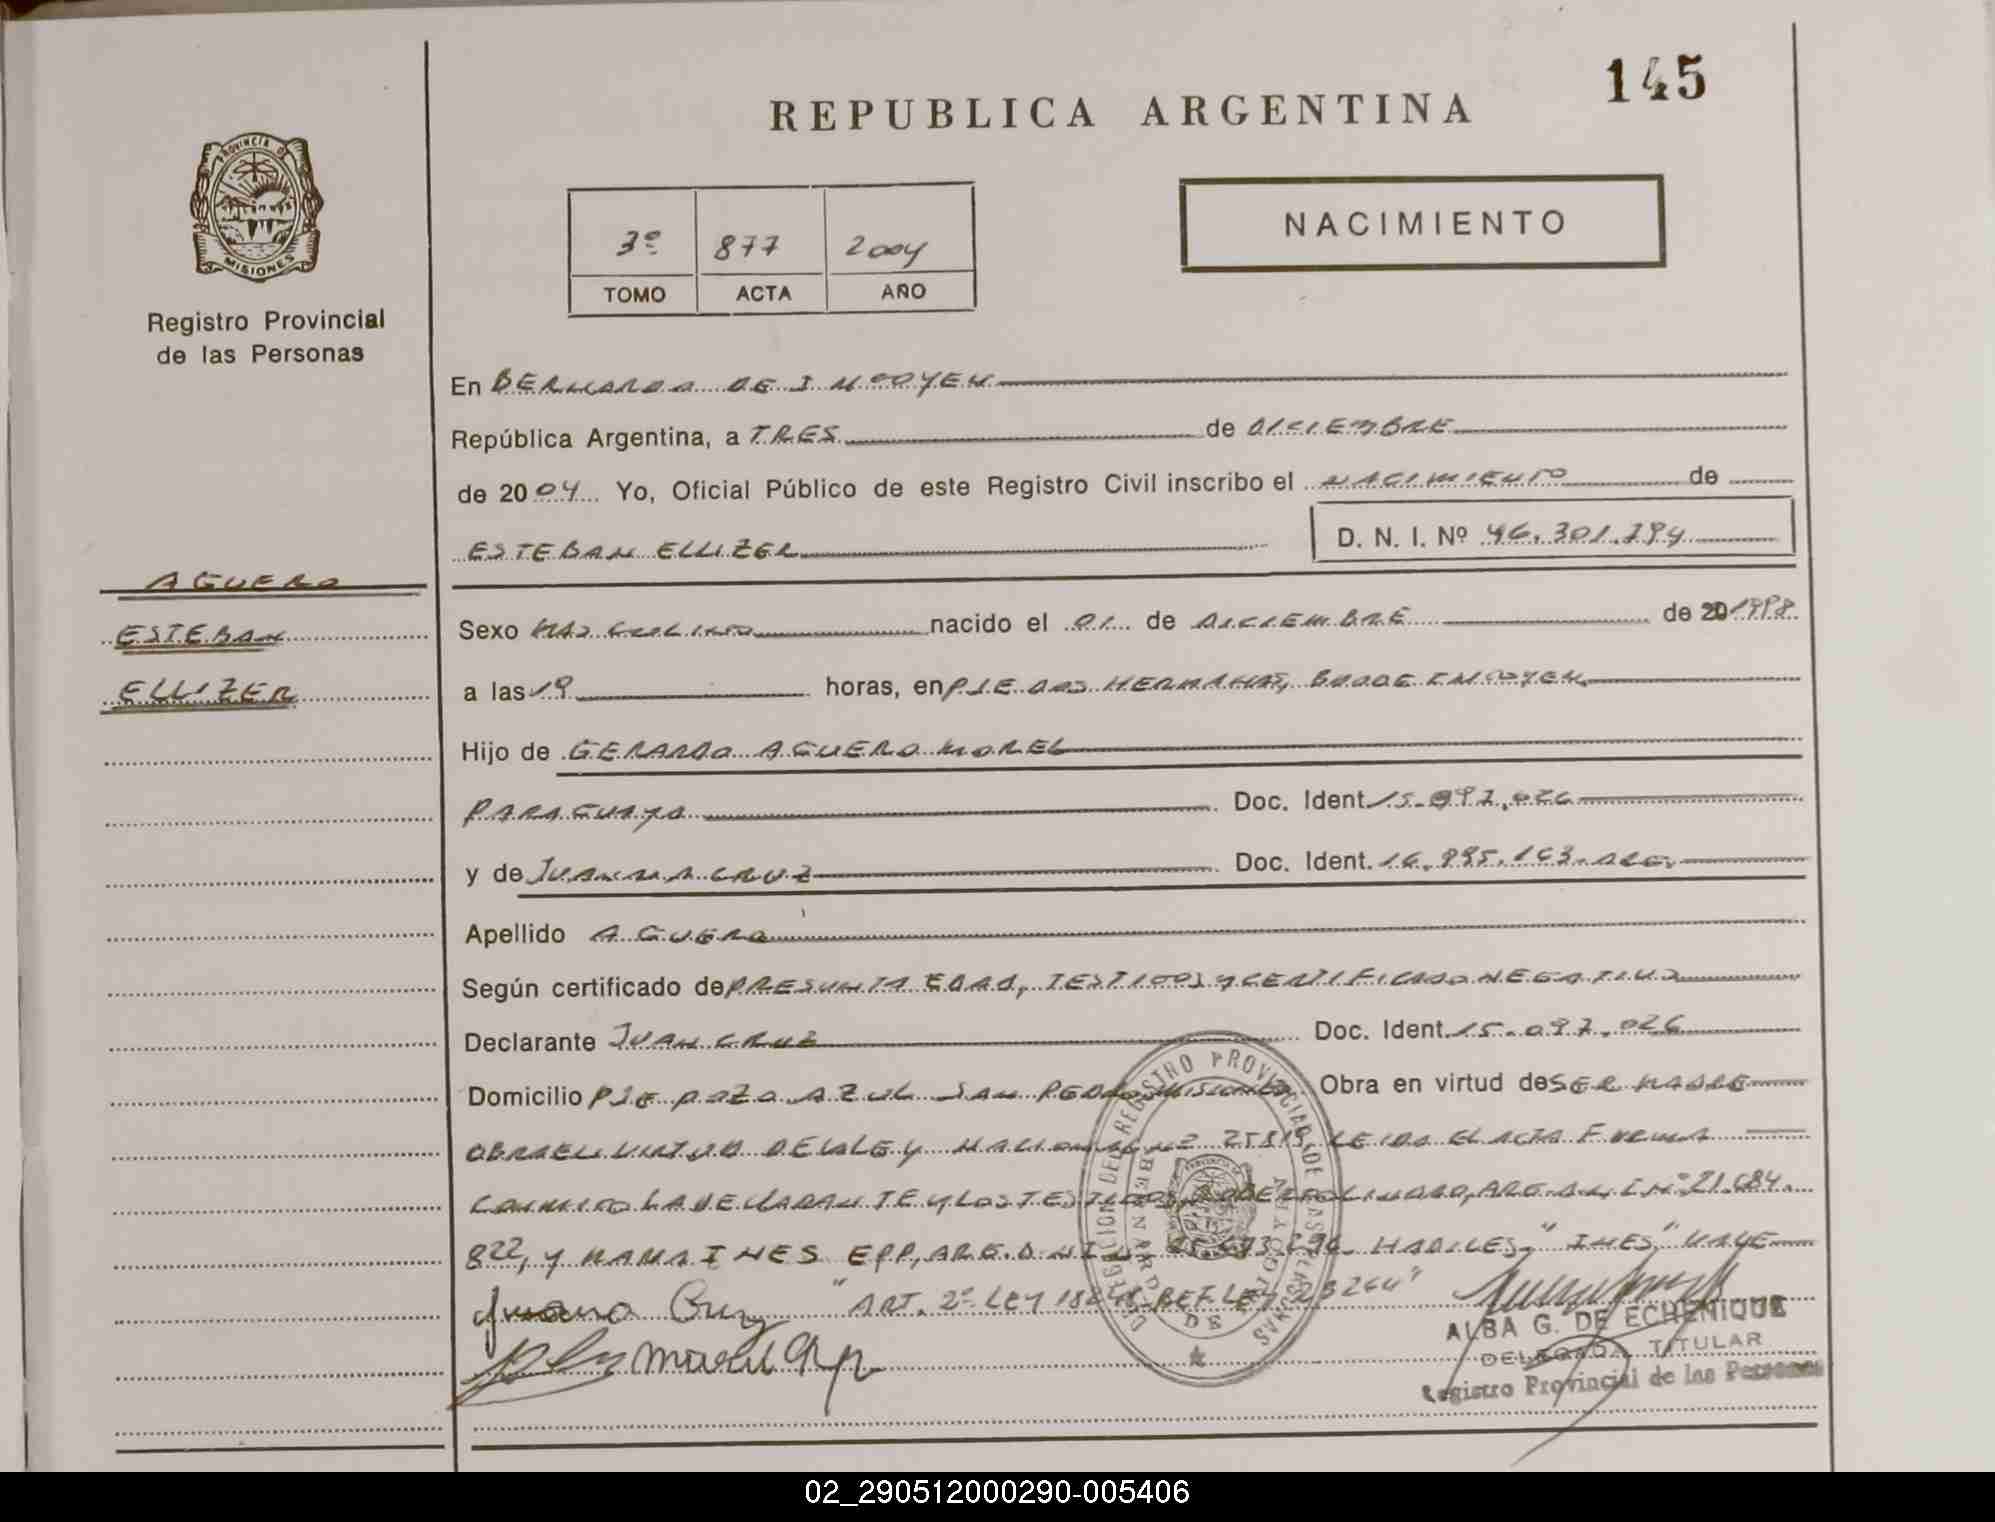 145
REPUBLICA ARGENTINA
PROVINCIA DE
MISIONES
Registro Provincial
de las Personas
NACIMIENTO
3º 877 2004
TOMO ACTA AÑO
En BERNARDO DE IRIGOYEN
República Argentina, a TRES de DICIEMBRE
de 2004 Yo, Oficial Público de este Registro Civil inscribo el NACIMIENTO de
ESTEBAN ELLIZER D. N. I. Nº 46.301.
AGUERO
ESTEBAN
ELLIZER
Sexo MASCULINO nacido el 01 de DICIEMBRE de 20 1998
a las 19 horas, en PJE DOS HERMANAS,
Hijo de GERARDO AGUERO MOREL
PARAGUAYO Doc. Ident. 15.092.026
y de JUANA CRUZ Doc. Ident. 16. ARG.
Apellido AGUERO
Según certificado de PRESUNTA EDAD, TESTIGOS Y CERTIFICADO NEGATIVO
Declarante JUAN CRUZ Doc. Ident. 15.092.026
Domicilio PJE POZO AZUL SAN PEDRO MISIONES Obra en virtud de SER MADRE
OBRA EN VIRTUD DE LA LEY NACIONAL Nº LEIDA EL ACTA FIRMA
CONMIGO LA DECLARANTE Y LOS TESTIGOS ARG. D.N.I Nº 21.684.
822, Y MARIA INES EPP, ARG. D.N.I HABILES, "INES" VALE
Juana Cruz "ART. 2º LEY
ALBA G. DE ECHENIQUE
DELEGADA TITULAR
Registro Provincial de las Personas
DELEGACION DEL REGISTRO PROVINCIAL DE LAS PERSONAS
BERNARDO DE IRIGOYEN
02_290512000290-005406